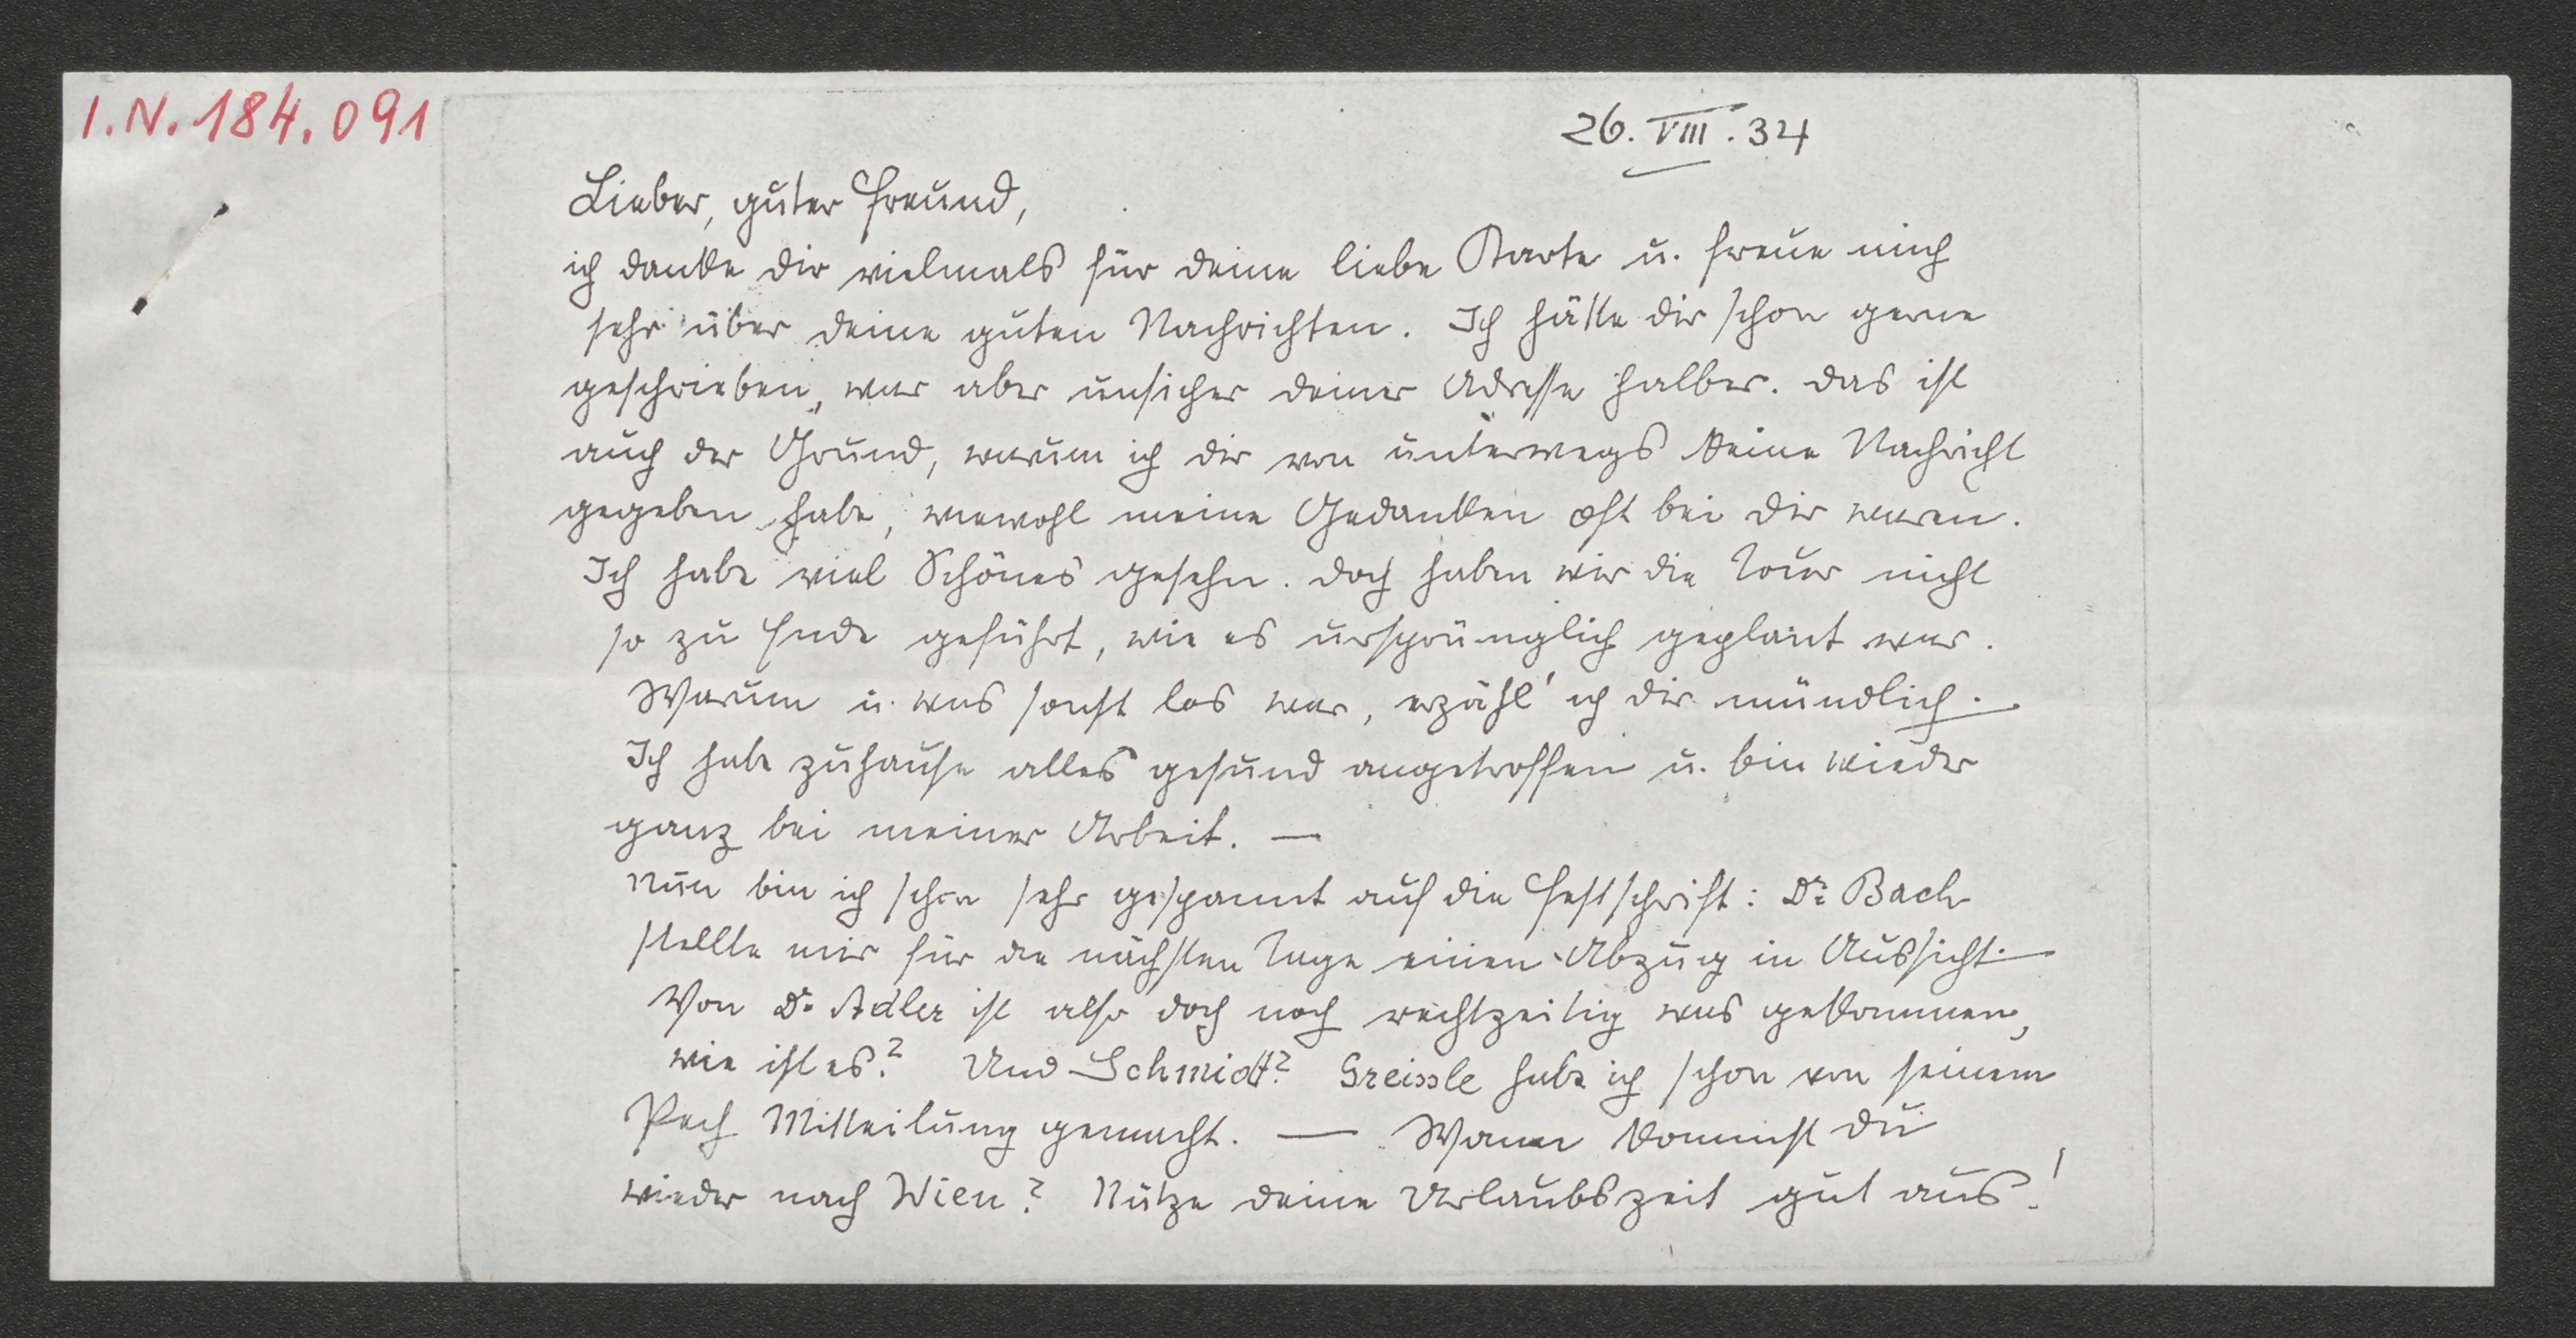 I.N. 184.091
26. VIII. 34
Lieber, guter Freund,
ich danke dir vielmals für deine liebe Karte u. freue mich
sehr über deine guten Nachrichten. Ich hätte dir schon gerne
geschrieben, war aber unsicher deiner Adresse halber. Das ist
auch der Grund, warum ich dir von unterwegs keine Nachricht
gegeben habe, wiewohl meine Gedanken oft bei dir waren.
Ich habe viel Schönes gesehn. Doch haben wir die Tour nicht
so zu Ende geführt, wie es ursprünglich geplant war.
Warum u. was sonst los war, erzähl' ich dir mündlich.
Ich habe zuhause alles gesund angetroffen u. bin wieder
ganz bei meiner Arbeit. —
Nun bin ich schon sehr gespannt auf die Festschrift: Dr Bach
stellte mir für die nächsten Tage einen Abzug in Aussicht.
Von Dr Adler ist also doch noch rechtzeitig was gekommen,
wie ist es? Und Schmidt? Greissle habe ich schon von seinem
Pech Mitteilung gemacht. — Wann kommst du
wieder nach Wien? Nütze deine Urlaubszeit gut aus!